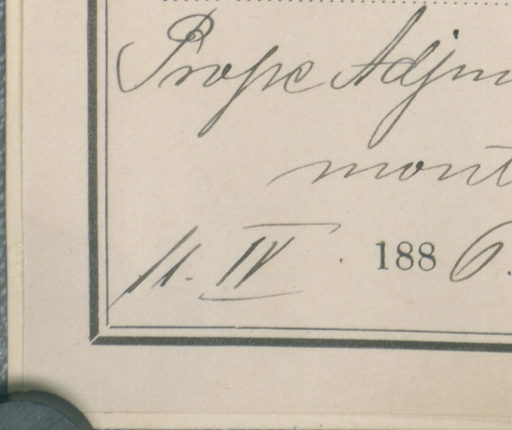 Prope Adjm
mont
11. IV. 1886.